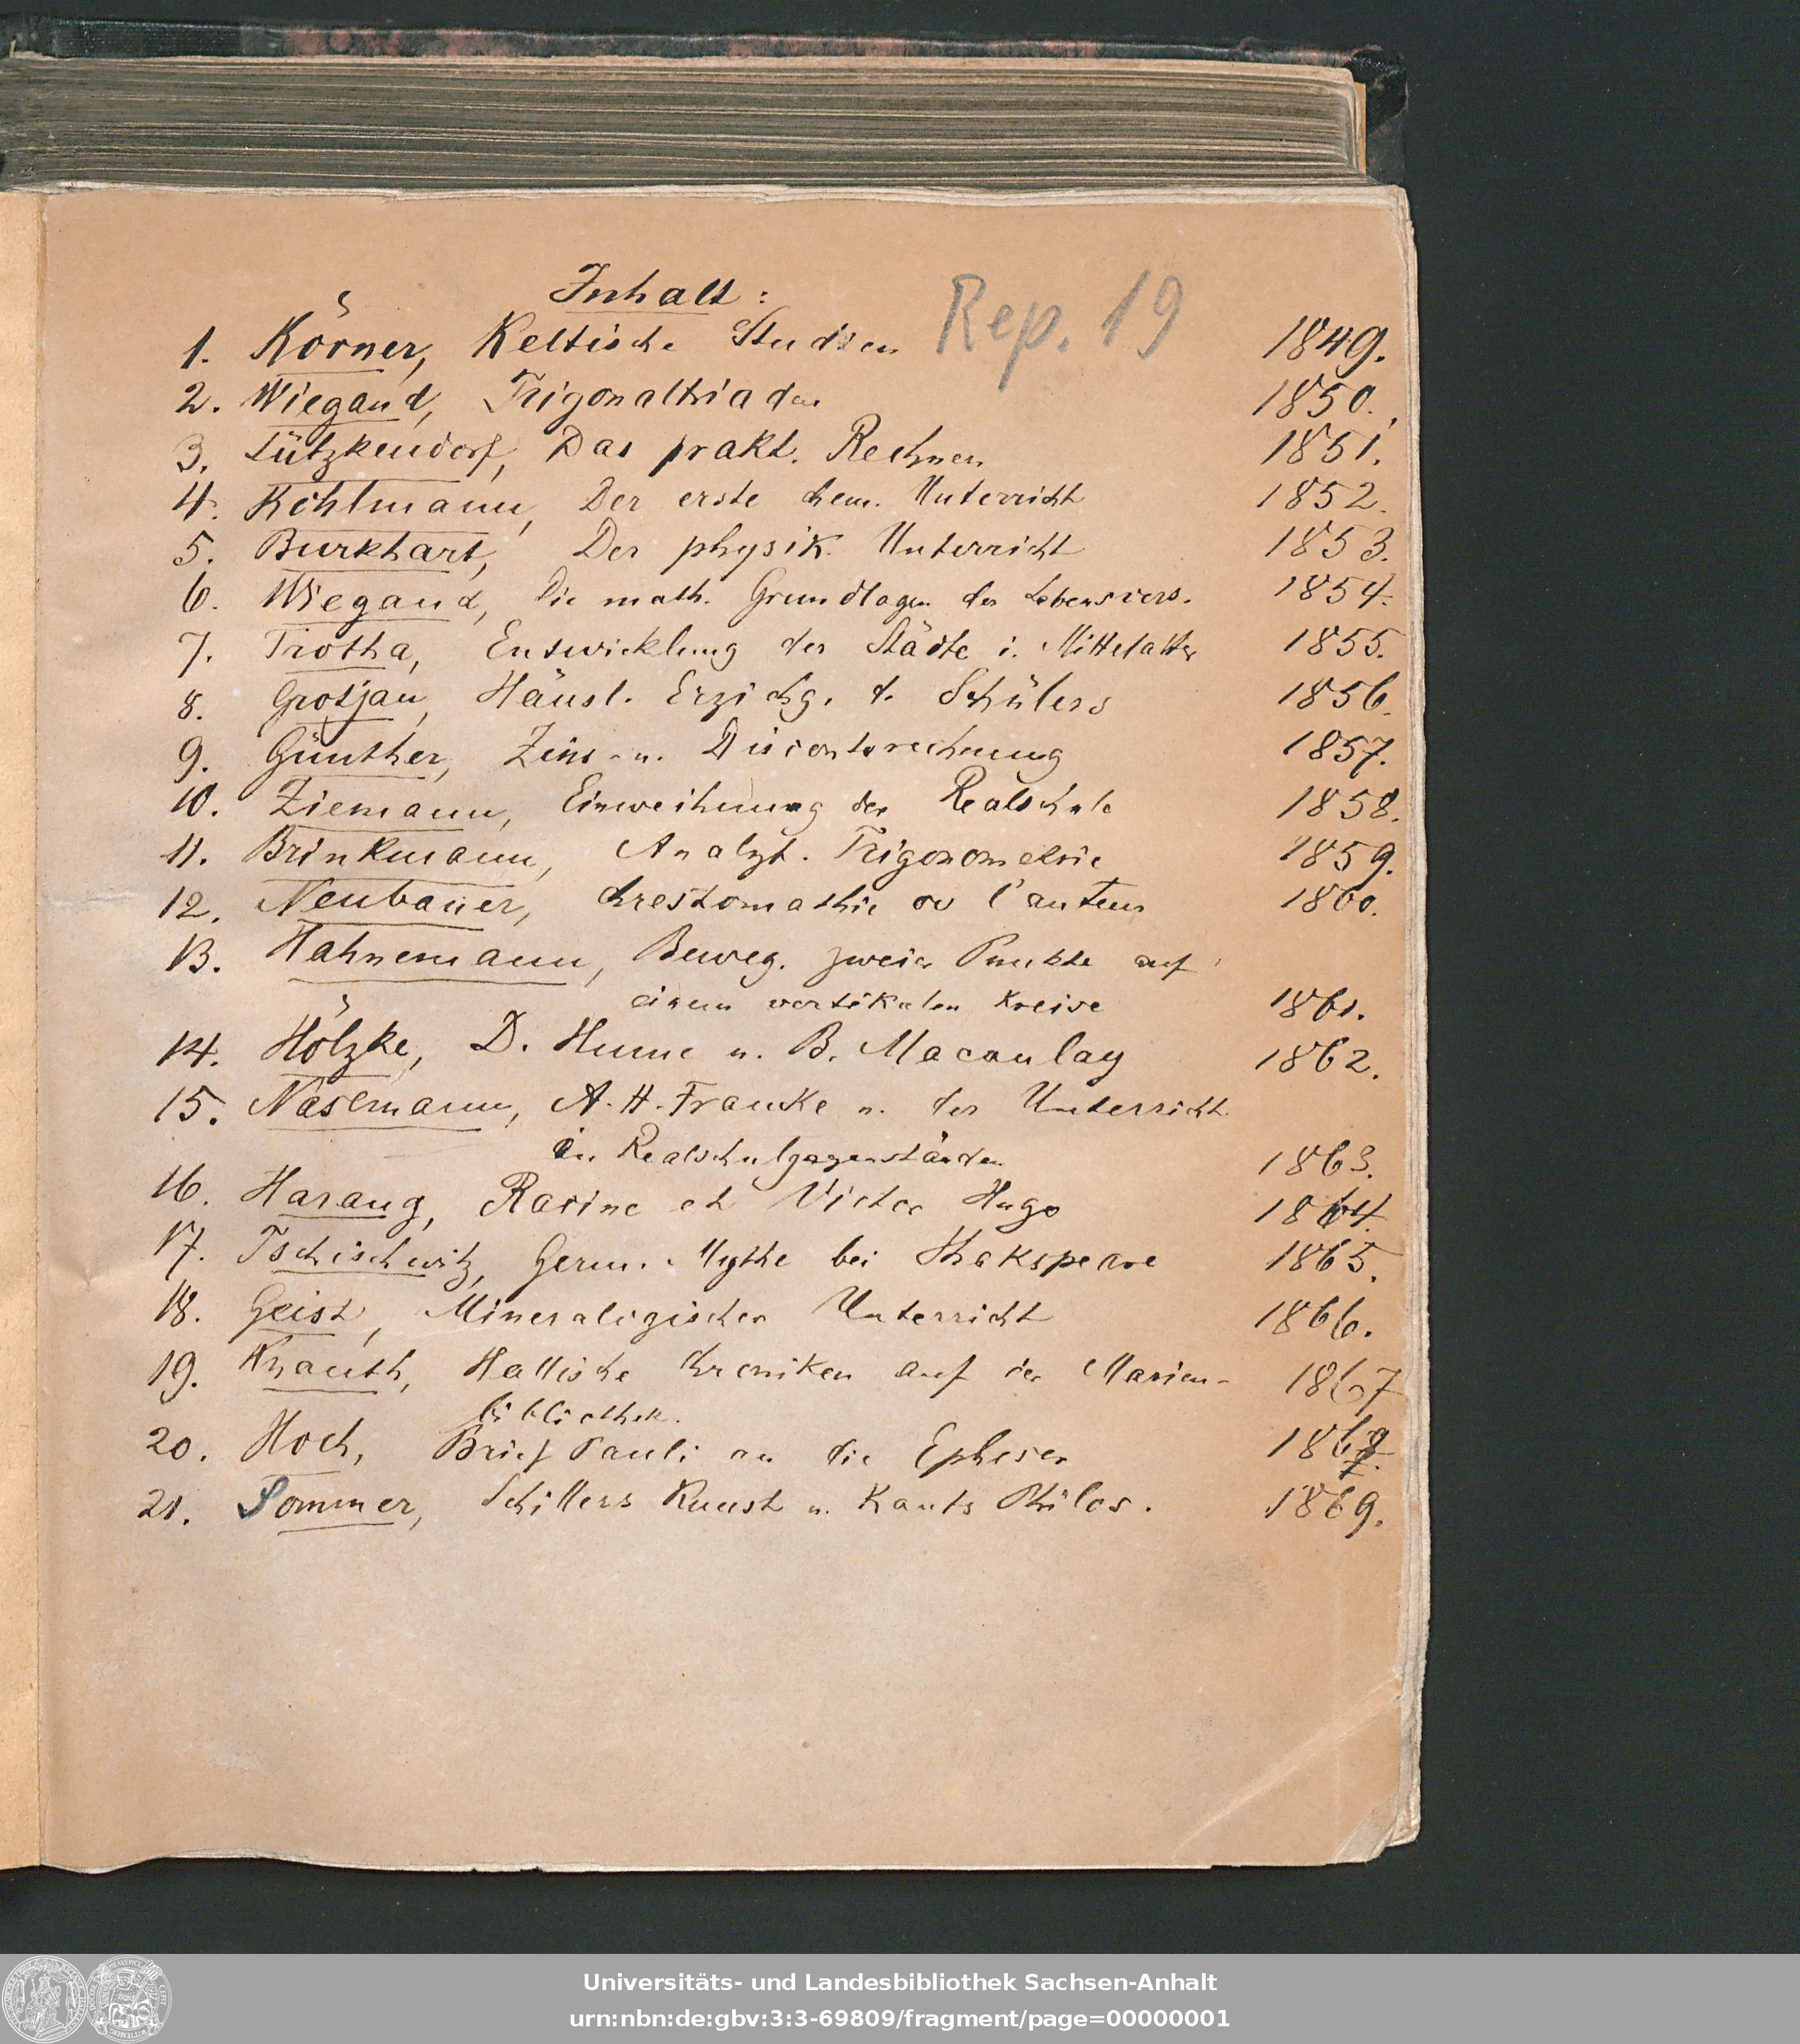 Inhalt:
Rep. 19
1. Körner, Keltische Studien 1849.
2. Wiegand, Trigonaltriaden 1850.
3. Lützkendorf, Das prakt. Rechnen 1851.
4. Kohlmann, Der erste chem. Unterricht 1852.
5. Burkhart, Der physik. Unterricht 1853.
6. Wiegand, Die math. Grundlagen der Lebensvers. 1854.
7. Trotha, Entwicklung der Städte i. Mittelalter 1855.
8. Grotjan, Häusl. Erziehg. d. Schülers 1856.
9. Günther, Zins- u. Discontorechnung 1857.
10. Ziemann, Einweihung der Realschule 1858.
11. Brinkmann, Analyt. Trigonometrie 1859.
12. Neubauer, Chrestomathie ou l'auteur 1860.
13. Hahnemann, Beweg. zweier Punkte auf
einem vertikalen Kreise 1861.
14. Hölzke, D. Hume u. B. Macaulay 1862.
15. Nasemann, A. H. Francke u. der Unterricht
in Realschulgegenständen 1863.
16. Harang, Racine et Victor Hugo 1864.
17. Tschischwitz, Germ. Mythe bei Shakspeare 1865.
18. Geist, Mineralogischer Unterricht 1866.
19. Knauth, Hallische Chroniken auf der Marien- 1867
bibliothek.
20. Hoch, Brief Pauli an die Epheser
21. Sommer, Schillers Kunst u. Kants Philos. 1869.
Universitäts- und Landesbibliothek Sachsen-Anhalt
urn:nbn:de:gbv:3:3-69809/fragment/page=00000001